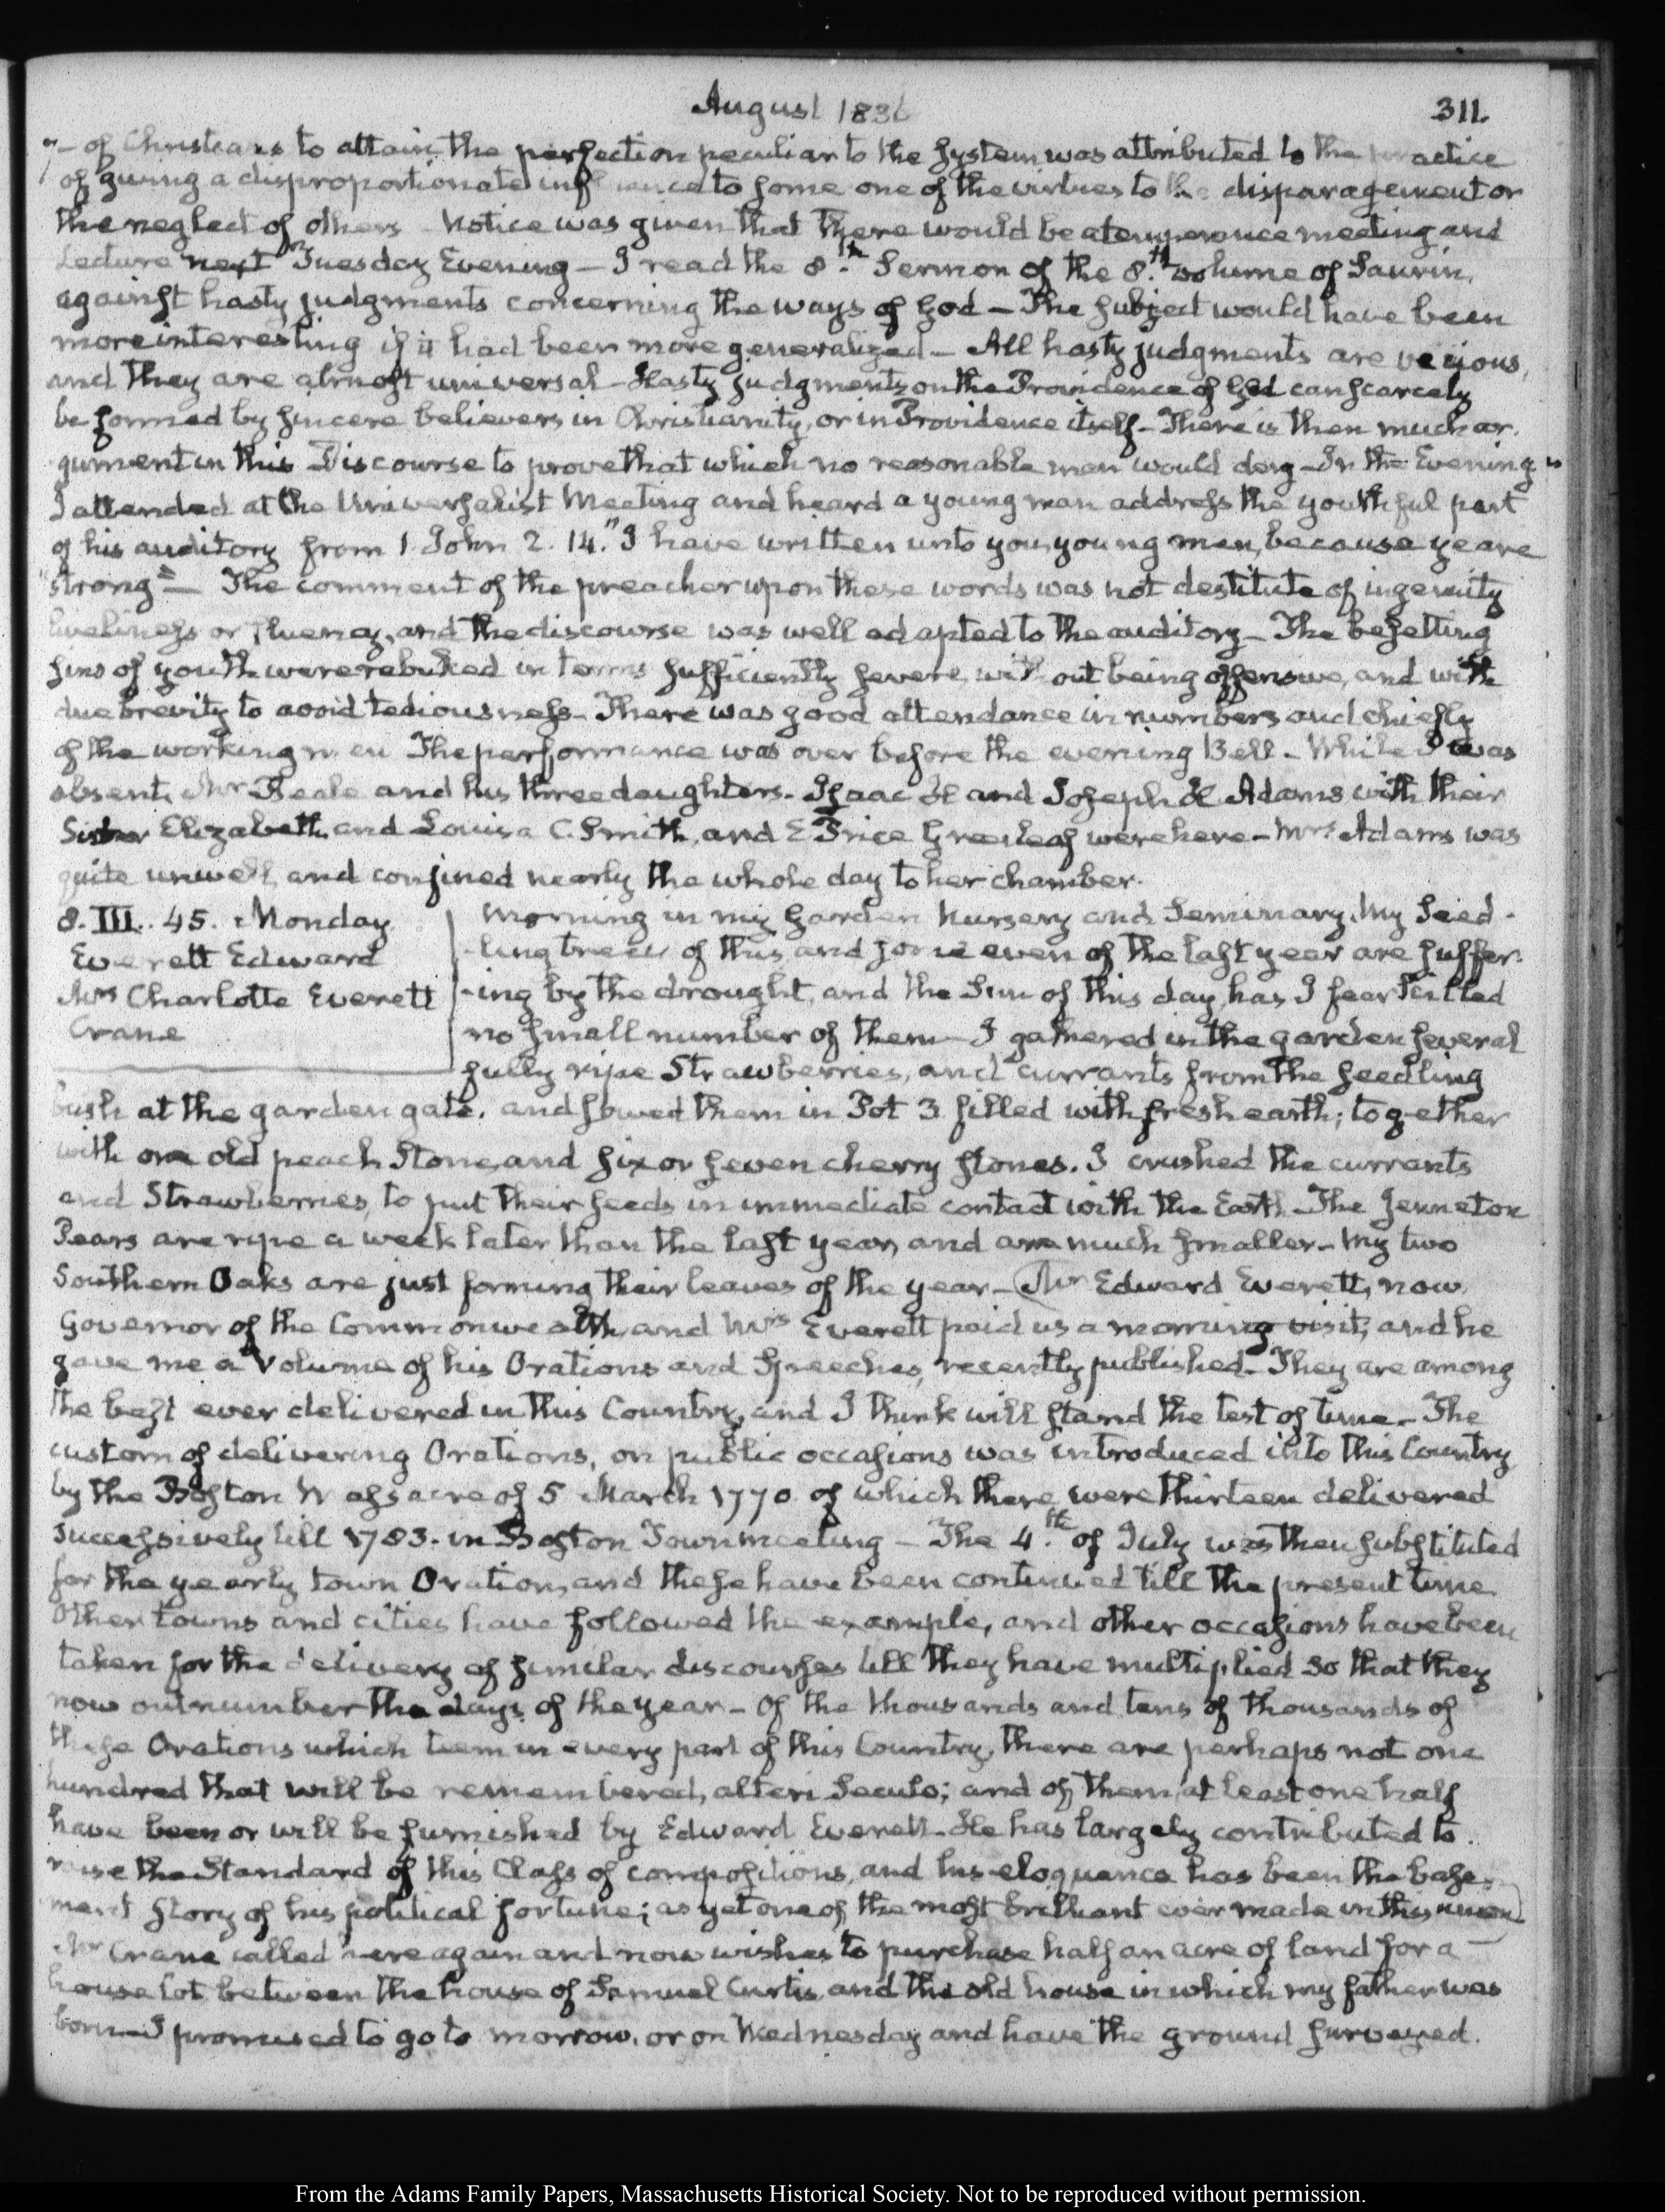 August 1836
311.
7– of Christians to attain the perfection peculiar to the system was attributed to the practice
of giving a disproportionate influence to some one of the virtues to the disparagement or
the neglect of others – Notice was given that there would be a temperance meeting and
Lecture next Tuesday Evening – I read the 8.th Sermon of the 8.th volume of Saurin,
against hasty judgments concerning the ways of God – The subject would have been
more interesting if it had been more generalized – All hasty judgments are vicious,
and they are almost universal – Hasty judgments on the Providence of God can scarcely
be formed by sincere believers in Christianity, or in Providence itself – There is then much ar-
gument in this Discourse to prove that which no reasonable man would deny – In the Evening
I attended at the Universalist Meeting and heard a young man address the youthful part
of his auditory from 1. John 2. 14. "I have written unto you, young men, because ye are
"strong" – The comment of the preacher upon these words was not destitute of ingenuity
liveliness or fluency, and the discourse was well adapted to the auditory – The besetting
sins of youth were rebuked in terms sufficiently severe, without being offensive, and with
due brevity to avoid tediousness – There was good attendance in numbers and chiefly
of the working men The performance was over before the evening Bell – While I was
absent, Mr Beale and his three daughters – Isaac H and Joseph H Adams with their
Sister Elizabeth, and Louisa C. Smith, and E Price Greenleaf were here – Mrs Adams was
quite unwell, and confined nearly the whole day to her chamber.
8. III. 45. Monday
Everett Edward
Mrs Charlotte Everett
Crane
Morning in my Garden Nursery and Seminary. My Seed-
-ling trees of this and some even of the last year are suffer-
-ing by the drought, and the Sun of this day, has I fear killed
no small number of them – I gathered in the garden several
fully ripe Strawberries, and currants from the seedling
bush at the garden gate, and sowed them in Pot 3 filled with fresh earth; together
with one old peach Stone, and six or seven cherry stones. I crushed the currants
and Strawberries, to put their seeds in immediate contact with the Earth – The Jenneton
Pears are ripe a week later than the last year, and are much smaller – My two
Southern Oaks are just forming their leaves of the year – Mr Edward Everett, now
Governor of the Commonwealth, and Mrs Everett paid us a morning visit, and he
gave me a Volume of his Orations and Speeches, recently published – They are among
the best ever delivered in this Country, and I think will stand the test of time – The
custom of delivering Orations, on public occasions was introduced into this Country
by the Boston Massacre of 5 March 1770 of which there were thirteen delivered
successively till 1783. in Boston Town meeting – The 4.th of July was then substituted
for the yearly town Oration, and these have been continued till the present time
Other towns and cities have followed the example, and other occasions have been
taken for the delivery of similar discourses till they have multiplied so that they
now outnumber the days of the year – Of the thousands and tens of thousands of
these Orations which teem in every part of this Country, there are perhaps not one
hundred that will be remembered, alteri Seculo; and of them, at least one half
have been or will be furnished by Edward Everett – He has largely contributed to
raise the Standard of this Class of compositions, and his eloquence has been the base-
ment story of his political fortune; as yet one of the most brilliant ever made in this Union)
Mr Crane called here again and now wishes to purchase half an acre of land for a
house lot between the house of Samuel Curtis, and the old house in which my father was
born – I promised to go to morrow, or on Wednesday and have the ground surveyed.
From the Adams Family Papers, Massachusetts Historical Society. Not to be reproduced without permission.